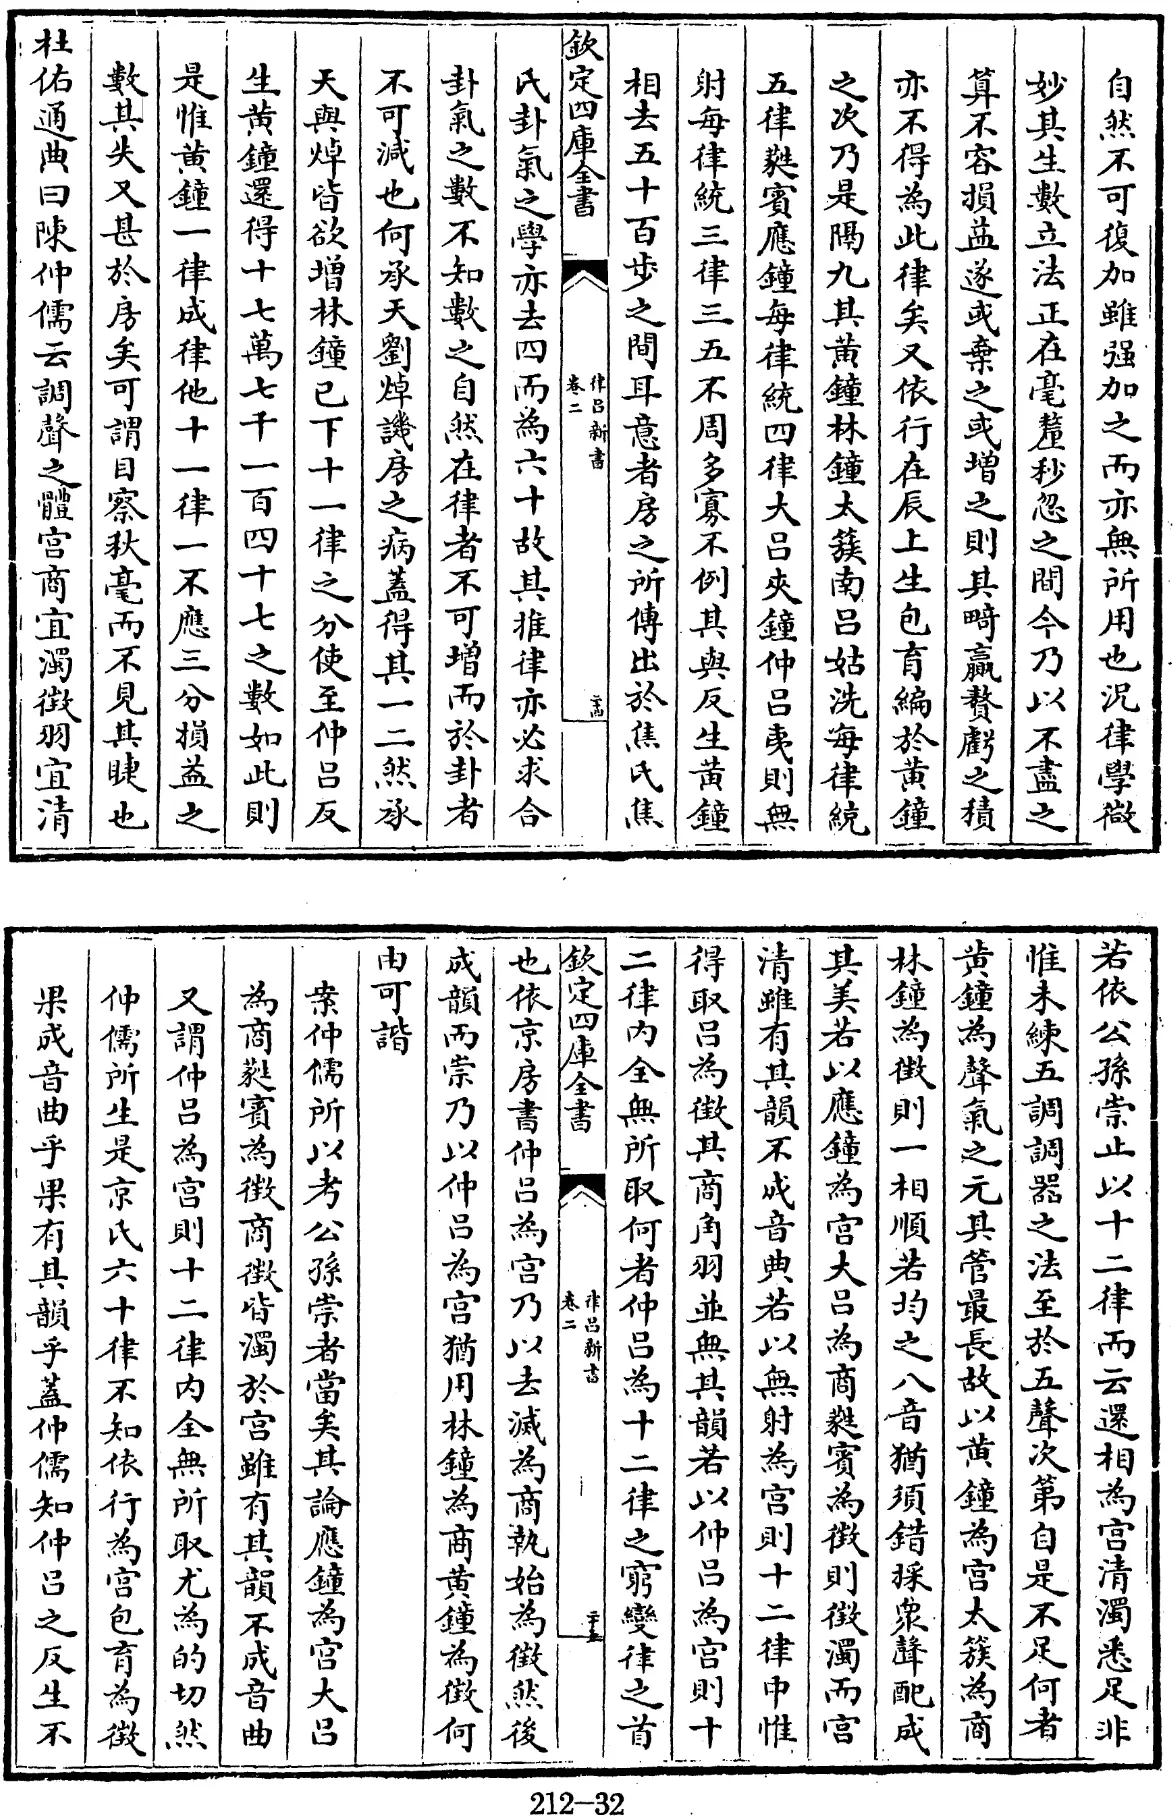 自然不可復加雖强加之而亦無所用也況律學微
妙其生數立法正在毫釐秒忽之間今乃以不盡之
算不容損益遂或棄之或增之則其畸贏贅虧之積
亦不得為此律矣又依行在辰上生包育編於黃鐘
之次乃是隔九其黃鐘林鐘太簇南吕姑洗每律統
五律蕤賓應鐘每律統四律大吕夾鐘仲吕夷則無
射每律統三律三五不周多寡不例其與反生黃鐘
相去五十百步之間耳意者房之所傳出於焦氏焦
欽定四庫全書
律吕新書
卷二
二十四
氏卦氣之學亦去四而為六十故其推律亦必求合
卦氣之數不知數之自然在律者不可增而於卦者
不可減也何承天劉焯譏房之病蓋得其一二然承
天與焯皆欲增林鐘已下十一律之分使至仲吕反
生黃鐘還得十七萬七千一百四十七之數如此則
是惟黃鐘一律成律他十一律一不應三分損益之
數其失又甚於房矣可謂目察秋毫而不見其睫也
杜佑通典曰陳仲儒云調聲之體宫商宜濁徵羽宜清
若依公孫崇止以十二律而云還相為宫清濁悉足非
惟未練五調調器之法至於五聲次第自是不足何者
黃鐘為聲氣之元其管最長故以黃鐘為宫太簇為商
林鐘為徵則一相順若均之八音猶須錯採衆聲配成
其美若以應鐘為宫大吕為商蕤賓為徵則徵濁而宫
清雖有其韻不成音典若以無射為宫則十二律中惟
得取吕為徵其商角羽並無其韻若以仲吕為宫則十
二律内全無所取何者仲吕為十二律之窮變律之首
欽定四庫全書
律吕新書
卷二
二十五
也依京房書仲吕為宫乃以去滅為商執始為徵然後
成韻而崇乃以仲吕為宫猶用林鐘為商黃鐘為徵何
由可諧
案仲儒所以考公孫崇者當矣其論應鐘為宫大吕
為商蕤賓為徵商徵皆濁於宫雖有其韻不成音曲
又謂仲吕為宫則十二律内全無所取尤為的切然
仲儒所生是京氏六十律不知依行為宫包育為徵
果成音曲乎果有其韻乎蓋仲儒知仲吕之反生不
212-32